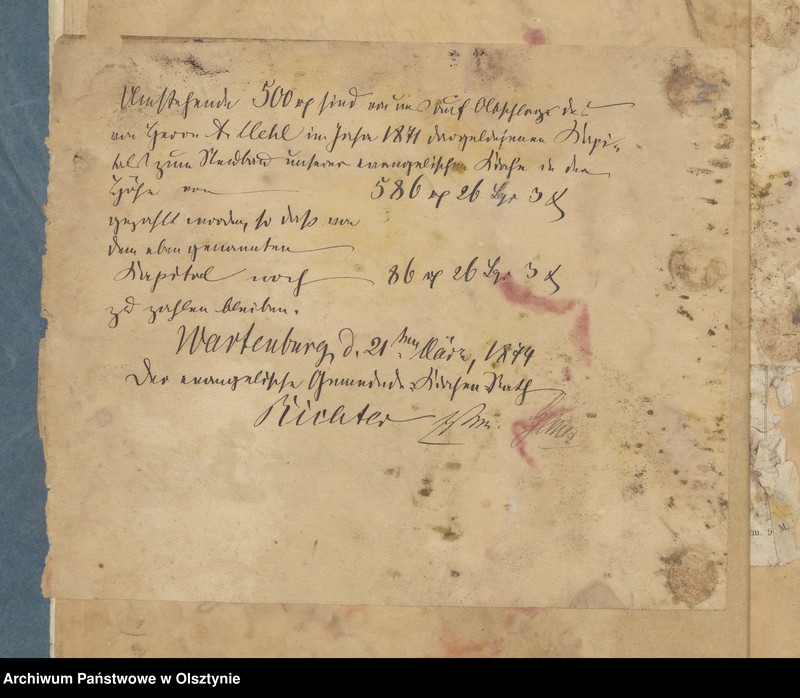 Umstehende 500 rp sind von uns auf Abschlag des
von Herrn A. Uehl im Jahre 1871 dargeliehenen Kapi-
tals zum Neubau unserer evangelischen Kirche in der
Höhe von 586 rp 26 Sgr 3 ₰
gezahlt worden, so daß von
dem eben genannten
Kapital noch 86 rp 26 Sgr 3 ₰
zu zahlen bleiben.
Wartenburg, d. 21ten März, 1874
Der evangelische Gemeinde-Kirchen-Rath
Richter
m. 9. M.
Archiwum Państwowe w Olsztynie